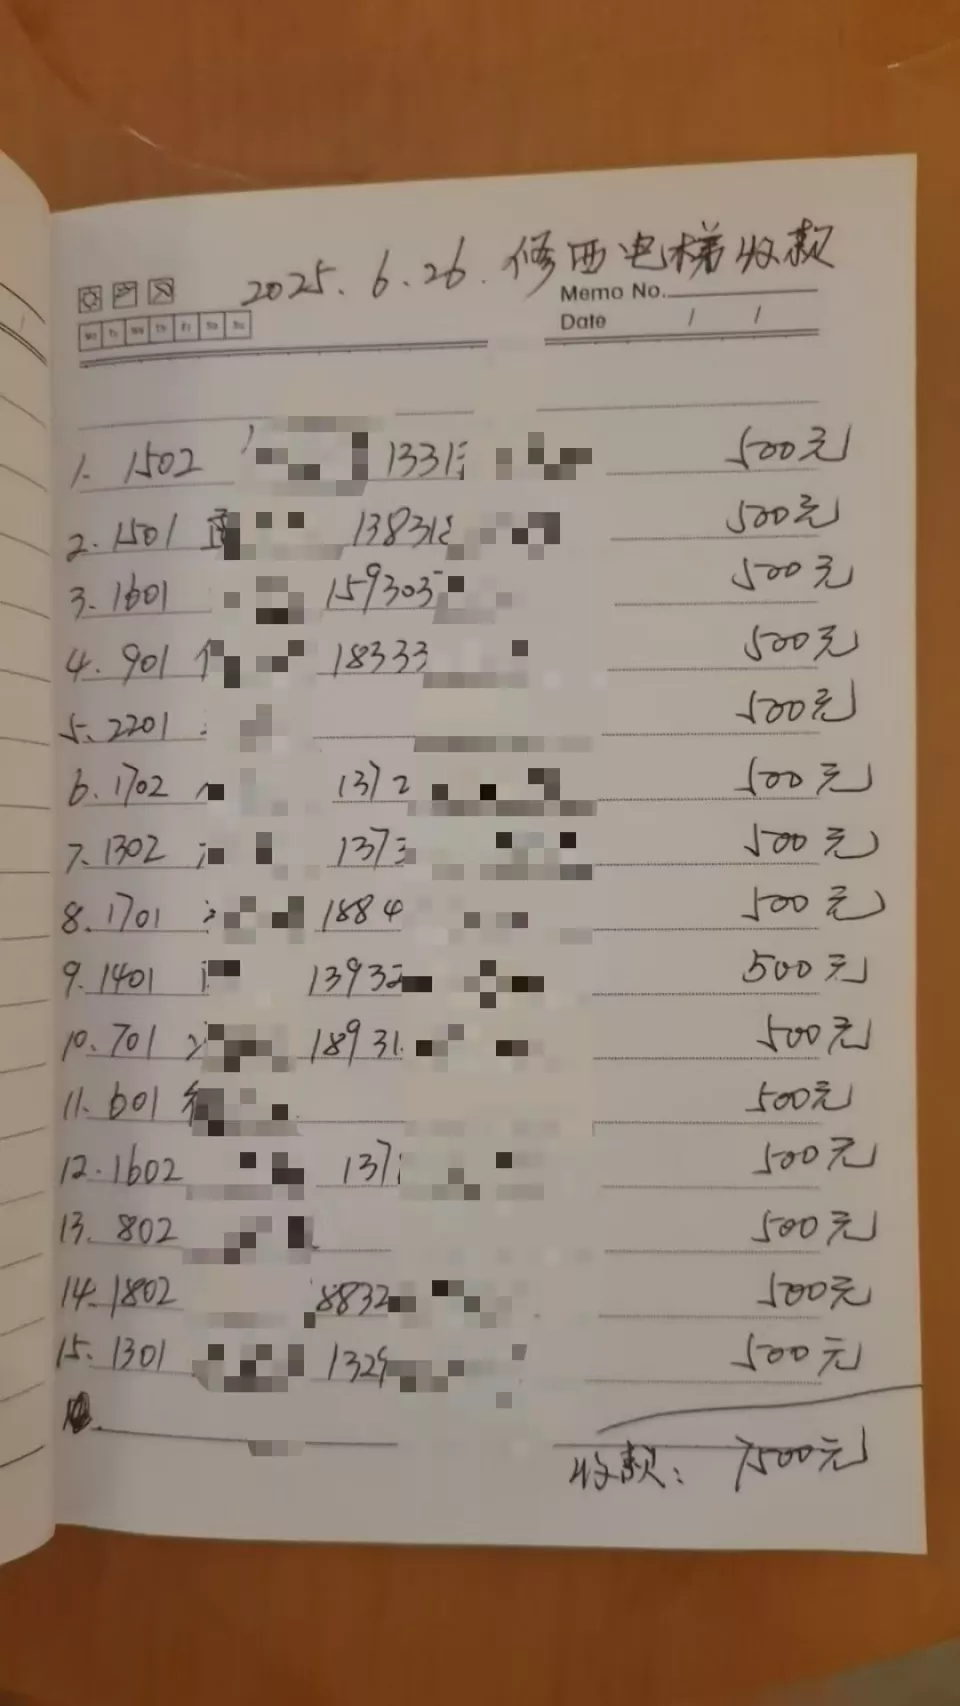 2025.6.26.修西电梯收款
Memo No.
Mo Tu We Th Fr Sa Su
Date / /
1. 1502 1331 500元
2. 1501 13831 500元
3. 1601 159303 500元
4. 901 18333 500元
5. 2201 500元
6. 1702 1372 500元
7. 1302 1373 500元
8. 1701 1884 500元
9. 1401 13932 500元
10. 701 18931 500元
11. 601 500元
12. 1602 137 500元
13. 802 500元
14. 1802 8832 500元
15. 1301 1329 500元
收款: 7500元